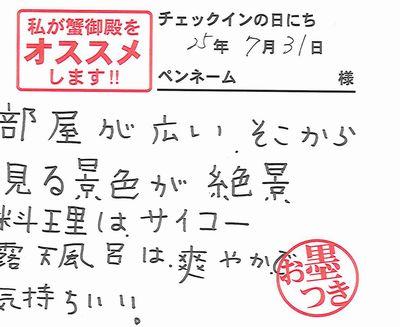 私が蟹御殿を
オススメ
します!!
チェックインの日にち
25年 7月31日
ペンネーム 様
部屋が広い。そこから
見る景色が絶景
料理は、サイコー
露天風呂は、爽やかで
気持ちいい。
お墨
つき